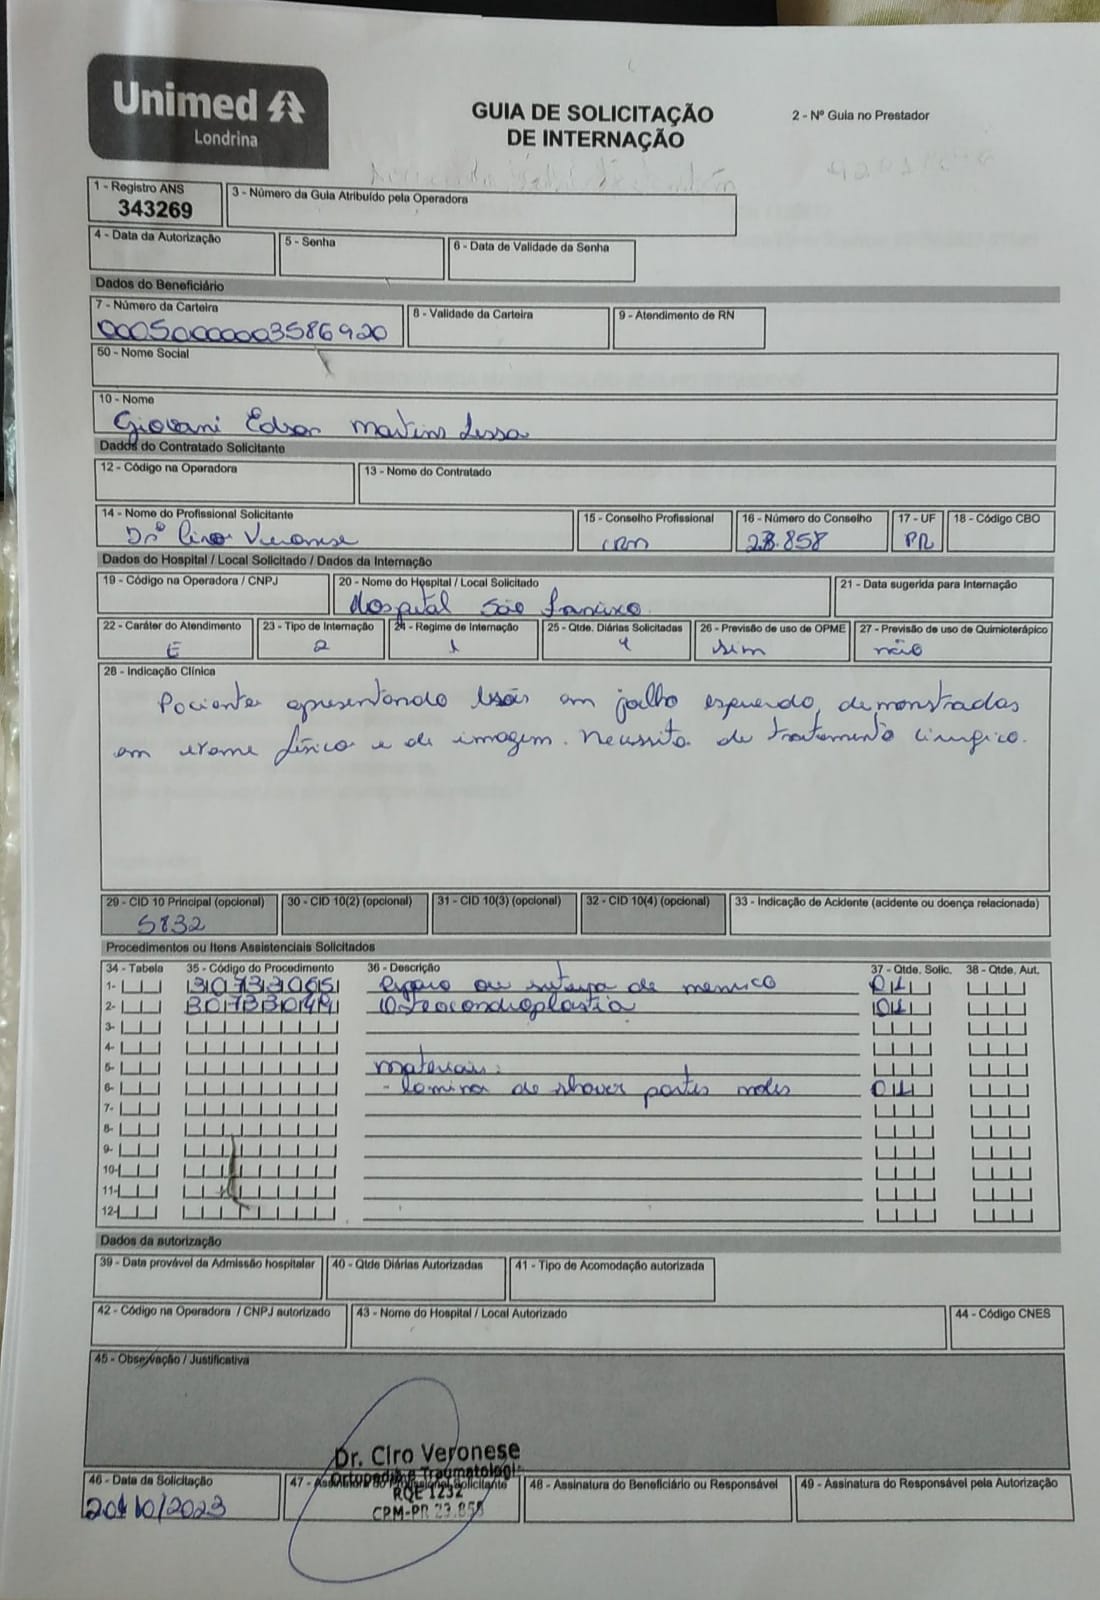 Unimed
Londrina
GUIA DE SOLICITAÇÃO
DE INTERNAÇÃO
2 - Nº Guia no Prestador
1 - Registro ANS
343269
3 - Número da Guia Atribuído pela Operadora
4 - Data da Autorização
5 - Senha
6 - Data de Validade da Senha
Dados do Beneficiário
7 - Número da Carteira
00050000003586920
8 - Validade da Carteira
9 - Atendimento de RN
50 - Nome Social
10 - Nome
Giovani Edson Martins Lessa
Dados do Contratado Solicitante
12 - Código na Operadora
13 - Nome do Contratado
14 - Nome do Profissional Solicitante
Drº Ciro Veronese
15 - Conselho Profissional
CRM
16 - Número do Conselho
23.858
17 - UF
PR
18 - Código CBO
Dados do Hospital / Local Solicitado / Dados da Internação
19 - Código na Operadora / CNPJ
20 - Nome do Hospital / Local Solicitado
Hospital São Francisco
21 - Data sugerida para Internação
22 - Caráter do Atendimento
E
23 - Tipo de Internação
2
24 - Regime de Internação
1
25 - Qtde. Diárias Solicitadas
1
26 - Previsão de uso de OPME
sim
27 - Previsão de uso de Quimioterápico
não
28 - Indicação Clínica
Paciente apresentando lesões em joelho esquerdo, demonstradas
em exame físico e de imagem. Necessita de tratamento cirurgico.
29 - CID 10 Principal (opcional)
S832
30 - CID 10(2) (opcional)
31 - CID 10(3) (opcional)
32 - CID 10(4) (opcional)
33 - Indicação de Acidente (acidente ou doença relacionada)
Procedimentos ou Itens Assistenciais Solicitados
34 - Tabela
35 - Código do Procedimento
36 - Descrição
37 - Qtde. Solic.
38 - Qtde. Aut.
1- 30733065 Reparo ou sutura de menisco 01
2- 30733049 Osteocondroplastia 01
3-
4-
5- materiais:
6- - Lamina de shaver partes moles 01
7-
8-
9-
10-
11-
12-
Dados da autorização
39 - Data provável da Admissão hospitalar
40 - Qtde Diárias Autorizadas
41 - Tipo de Acomodação autorizada
42 - Código na Operadora / CNPJ autorizado
43 - Nome do Hospital / Local Autorizado
44 - Código CNES
45 - Observação / Justificativa
46 - Data da Solicitação
20/10/2023
47 - Assinatura do Profissional Solicitante
Dr. Ciro Veronese
Ortopedia e Traumatologi
RQE 1232
CRM-PR 23.858
48 - Assinatura do Beneficiário ou Responsável
49 - Assinatura do Responsável pela Autorização